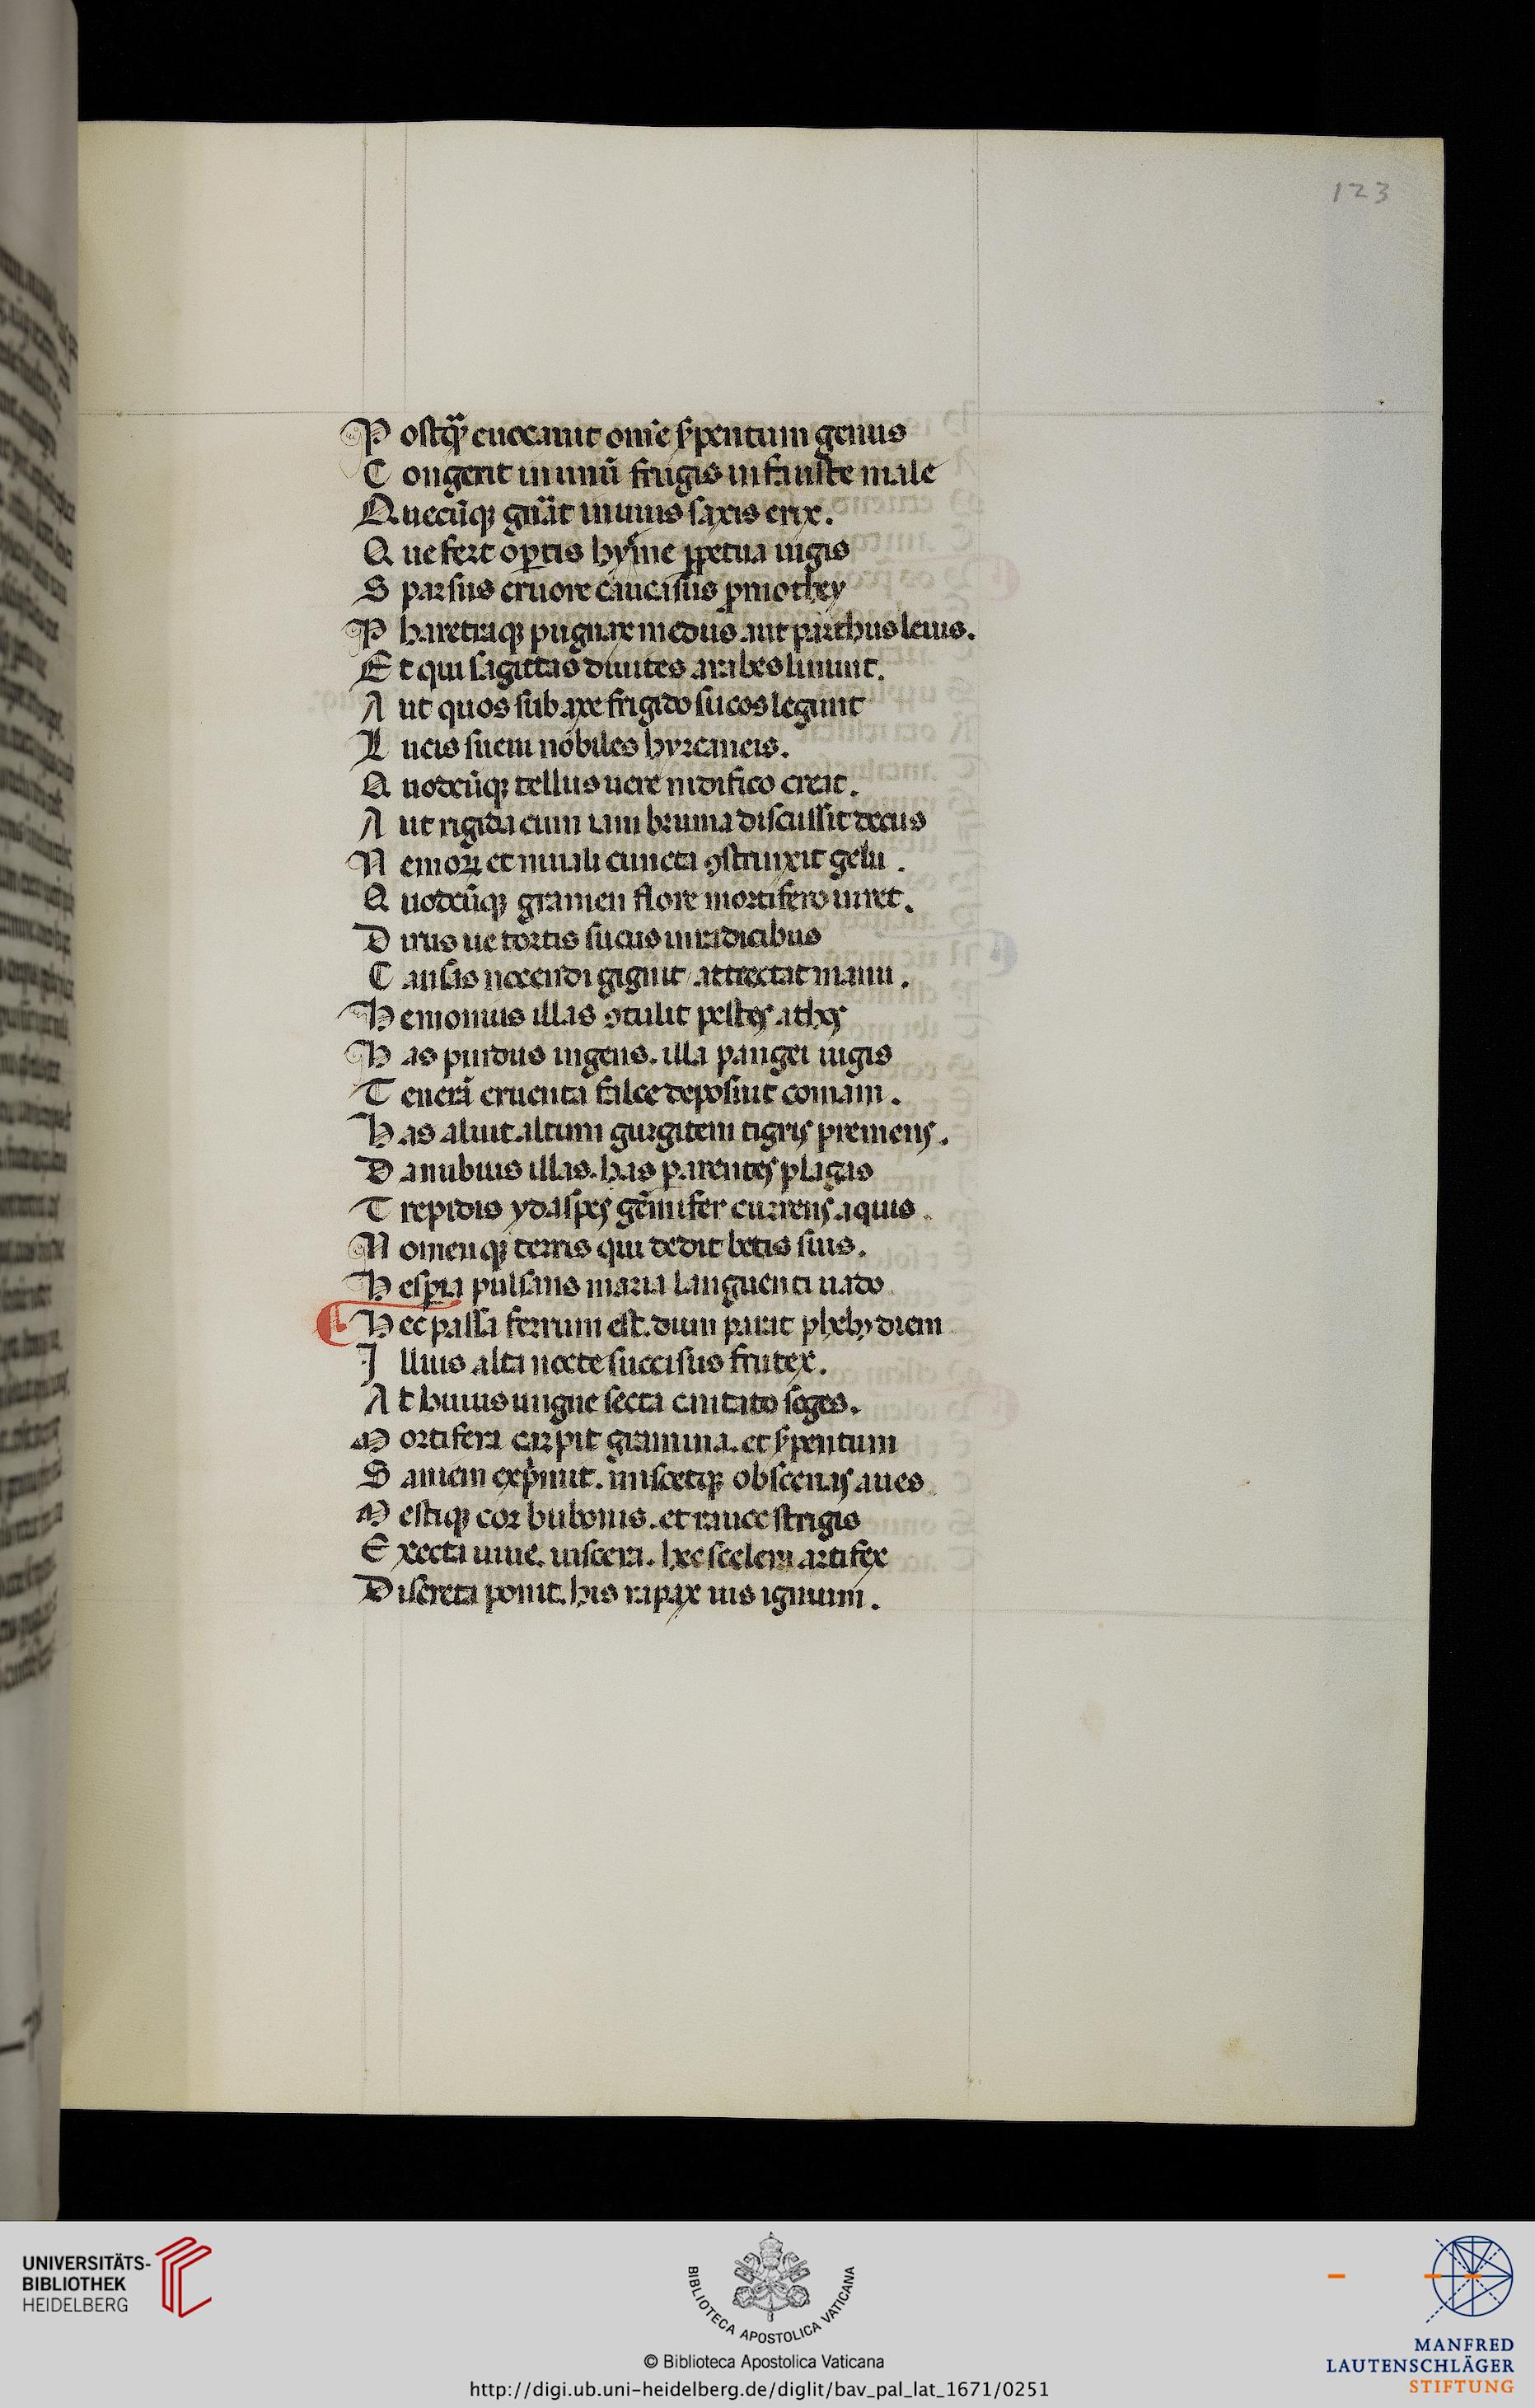 123
P ostq̃ȝ euocauit om̃e ẜpentum genus
C ongerit in unũ frugis infauste male
Q uecũqȝ gñat inuius saxis erix.
Q ue fert oꝑtis hyẽme ꝑpetua iugis
S parsus cruore caucasus ꝓmothey
P haretraqȝ pugnax medus aut parthus leuis.
E t qui sagittas diuites arabes linunt.
A ut quos sub axe frigido sucos legunt
L ucis sueui nobiles hyrcineis.
Q uodcũqȝ tellus uere nidifico creat.
A ut rigida cum iam bruma discussit decus
N emoꝝ et niuali cuncta ꝯstrinxit gelu.
Q uodcũqȝ gramen flore mortifero uiret.
D irus ue tortis sucus in radicibus
C ausas nocendi gignit / attrectat manu.
H emonius illas ꝯtulit pestes athos
H as pindus ingens. illa pangei iugis
T enerã cruenta falce deposuit comam.
H as aluit altum gurgitem tigris premens.
D anubius illas. has ꝑ arentes plagas
T repidis ydaspes gẽmifer currens aquis.
N omenqȝ terris qui dedit betis suis.
H esꝑia pulsans maria languenti uado
H ec passa ferrum est. dum parat phebus diem
I llius alta nocte succisus frutex.
A t huius ungue secta cantato seges.
M ortifera carpit gramina. et ẜpentum
S aniem exp̃mit. miscetqȝ obscenas aues
M estiqȝ cor bubonis. et rauce strigis
E xecta uiue. uiscera. hec scelerum artifex
D iscreta ponit. his rapax uis ignium.
UNIVERSITÄTS-
BIBLIOTHEK
HEIDELBERG
BIBLIOTECA APOSTOLICA VATICANA
© Biblioteca Apostolica Vaticana
http://digi.ub.uni-heidelberg.de/diglit/bav_pal_lat_1671/0251
MANFRED
LAUTENSCHLÄGER
STIFTUNG